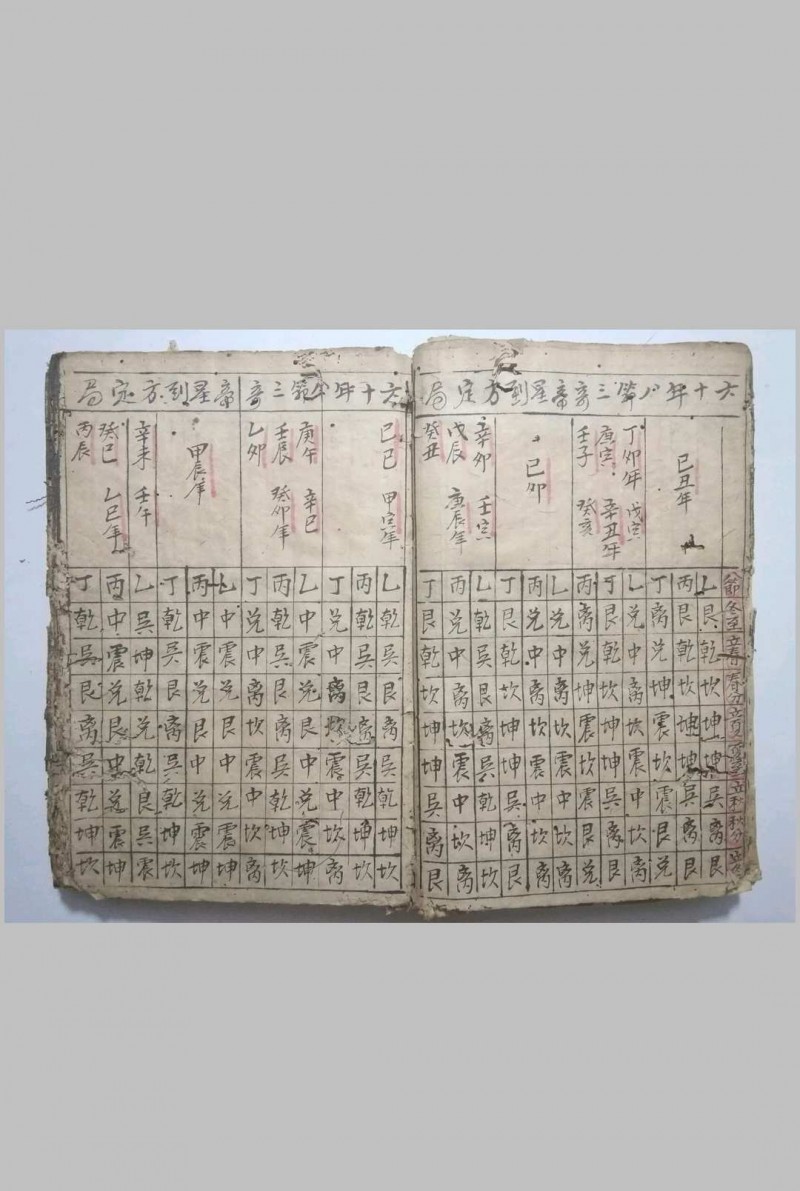 六十年八節三奇帝星到方定局
己丑年
丁卯年 戊寅
庚寅 辛丑年
壬子 癸亥
己卯
辛卯 壬寅
戊辰 庚辰年
癸丑
節冬至立春春分立夏夏至立秋秋分立冬
乙艮乾坎坤坤吳离艮
丙艮乾坎坤坤吳离艮
丁离兑坤震坎震艮兑
乙兑中离坎震中坎离
丁艮乾坎坤坤吳离艮
丙离兑坤震坎震艮兑
乙兑中离坎震中坎离
丙兑中离坎震中坎离
丁艮乾坎坤坤吳离艮
乙乾吳艮离吳乾坤坎
丙兑中离坎震中坎离
丁艮乾坎坤坤吳离艮
六十年八節三奇帝星到方定局
己巳 甲寅年
庚午 辛巳
壬辰 癸卯年
乙卯
甲辰年
辛未 壬午
癸巳 乙巳年
丙辰
乙乾吳艮离吳乾坤坎
丙乾吳艮离吳乾坤坎
丁兑中离坎震中坎离
乙中震兑艮中兑震坤
丙乾吳艮离吳乾坤坎
丁兑中离坎震中坎离
乙中震兑艮中兑震坤
丙中震兑艮中兑震坤
丁乾吳艮离吳乾坤坎
乙吳坤乾兑乾艮吳震
丙中震兑艮中兑震坤
丁乾吳艮离吳乾坤坎